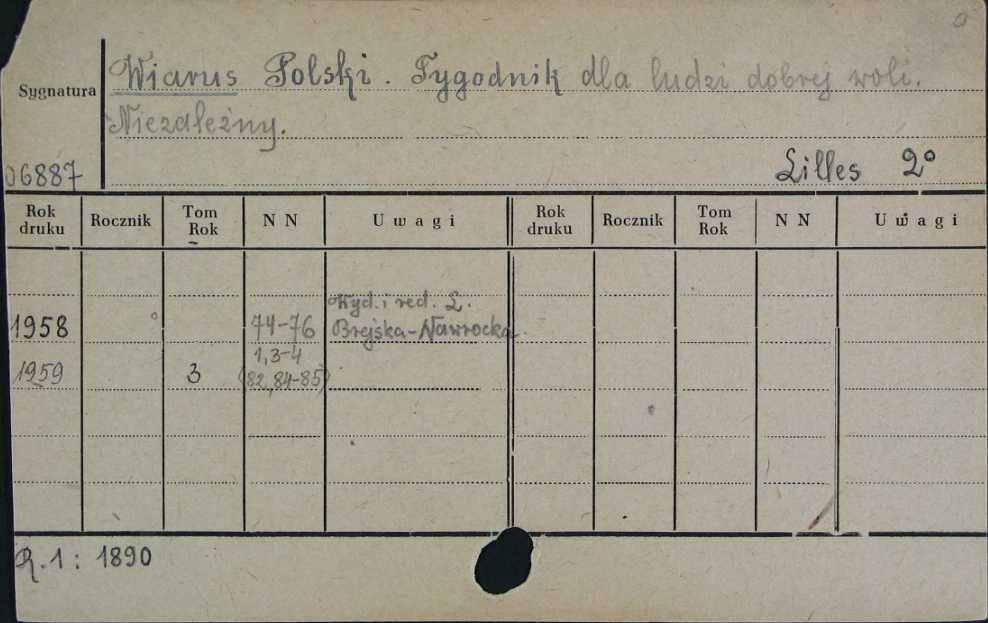 Sygnatura
Wiarus Polski. Tygodnik dla ludzi dobrej woli.
Niezależny.
06887
Lilles 2°
Rok druku Rocznik Tom Rok N N Uwagi Rok druku Rocznik Tom Rok N N Uwagi
Wyd. i red. L.
1958 74-76 Brejska-Nawrocka.
1,3-4
1959 3 (82,84-85)
R. 1 : 1890